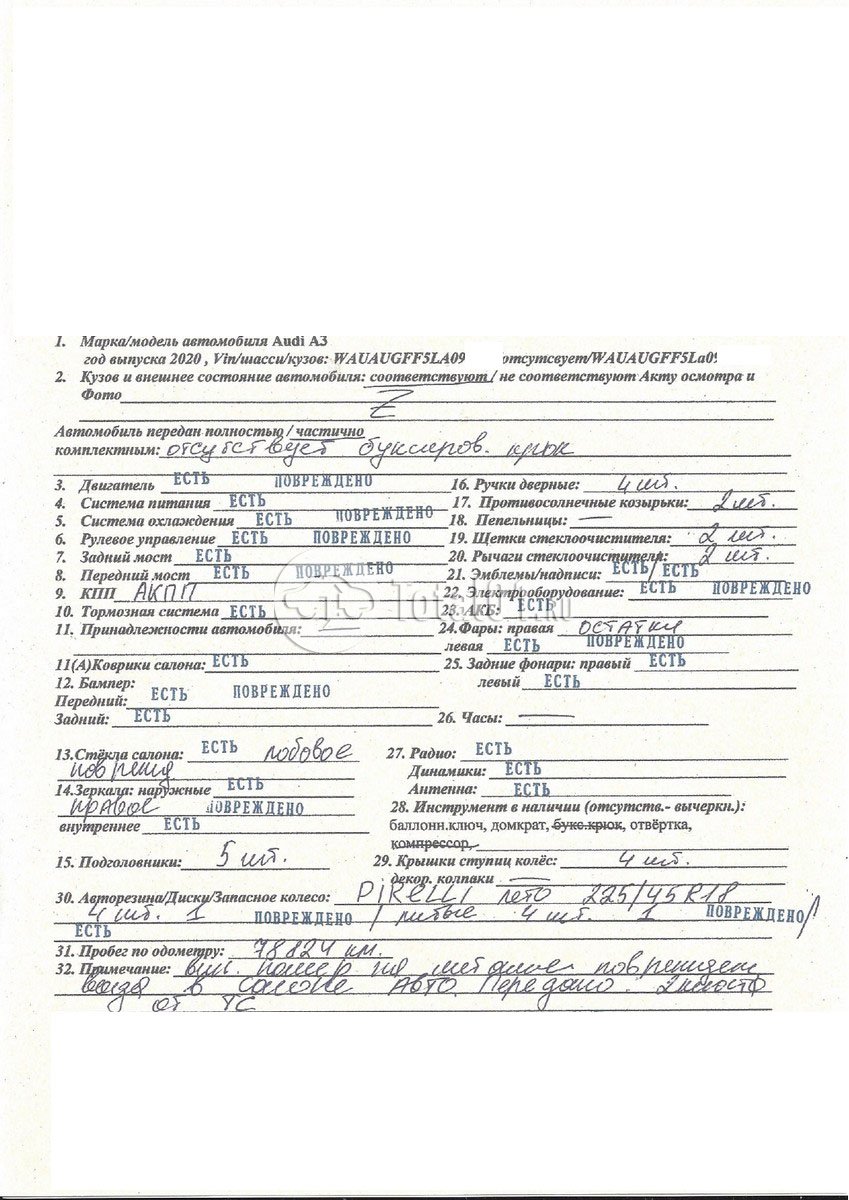 1. Марка/модель автомобиля Audi A3
год выпуска 2020 , Vin/шасси/кузов: WAUAUGFF5LA09 отсутсвует/WAUAUGFF5La0
2. Кузов и внешнее состояние автомобиля: соответствуют / не соответствуют Акту осмотра и
Фото Z
Автомобиль передан полностью / частично
комплектным: отсутствует буксиров. крюк
3. Двигатель ЕСТЬ ПОВРЕЖДЕНО
4. Система питания ЕСТЬ
5. Система охлаждения ЕСТЬ ПОВРЕЖДЕНО
6. Рулевое управление ЕСТЬ ПОВРЕЖДЕНО
7. Задний мост ЕСТЬ
8. Передний мост ЕСТЬ ПОВРЕЖДЕНО
9. КПП АКПП
10. Тормозная система ЕСТЬ
11. Принадлежности автомобиля: —
11(А)Коврики салона: ЕСТЬ
12. Бампер:
Передний: ЕСТЬ ПОВРЕЖДЕНО
Задний: ЕСТЬ
13.Стёкла салона: ЕСТЬ лобовое
14.Зеркала: наружные ЕСТЬ
правое ПОВРЕЖДЕНО
внутреннее ЕСТЬ
15. Подголовники: 5 шт.
16. Ручки дверные: 4 шт.
17. Противосолнечные козырьки: 2 шт.
18. Пепельницы: —
19. Щетки стеклоочистителя: 2 шт.
20. Рычаги стеклоочистителя: 2 шт.
21. Эмблемы/надписи: ЕСТЬ / ЕСТЬ
22. Электрооборудование: ЕСТЬ ПОВРЕЖДЕНО
23. АКБ: ЕСТЬ
24.Фары: правая ОСТАТКИ
левая ЕСТЬ ПОВРЕЖДЕНО
25. Задние фонари: правый ЕСТЬ
левый ЕСТЬ
26. Часы: —
27. Радио: ЕСТЬ
Динамики: ЕСТЬ
Антенна: ЕСТЬ
28. Инструмент в наличии (отсутств.- вычеркн.):
баллонн.ключ, домкрат, букс.крюк, отвёртка,
компрессор,
29. Крышки ступиц колёс: 4 шт.
декор. колпаки —
30. Авторезина/Диски/Запасное колесо: PIRELLI лето 225/45 R18
4 шт. 1 ПОВРЕЖДЕНО / литые 4 шт. 1 ПОВРЕЖДЕНО/
ЕСТЬ
31. Пробег по одометру: 78824 км.
32. Примечание: вин. номер на металле
в салоне АВТО. Передано 2
от ТС
Total01.RU